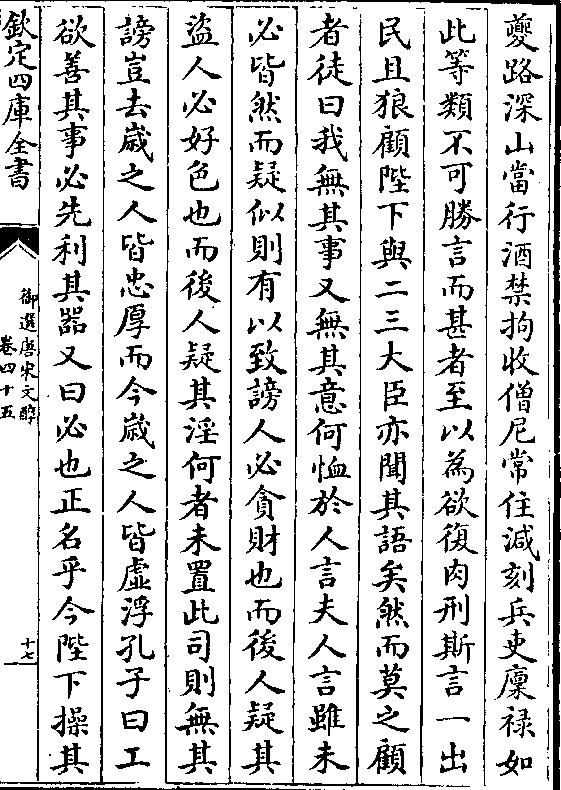 夔路深山當行酒禁拘收僧尼常住減刻兵吏廩祿如
此等類不可勝言而甚者至以為欲復肉刑斯言一出
民且狼顧陛下與二三大臣亦聞其語矣然而莫之顧
者徒曰我無其事又無其意何恤於人言夫人言雖未
必皆然而疑似則有以致謗人必貪財也而後人疑其
盜人必好色也而後人疑其淫何者未置此司則無其
謗豈去歲之人皆忠厚而今歲之人皆虛浮孔子曰工
欲善其事必先利其器又曰必也正名乎今陛下操其
欽定四庫全書
御選唐宋文醇
卷四十五
十七